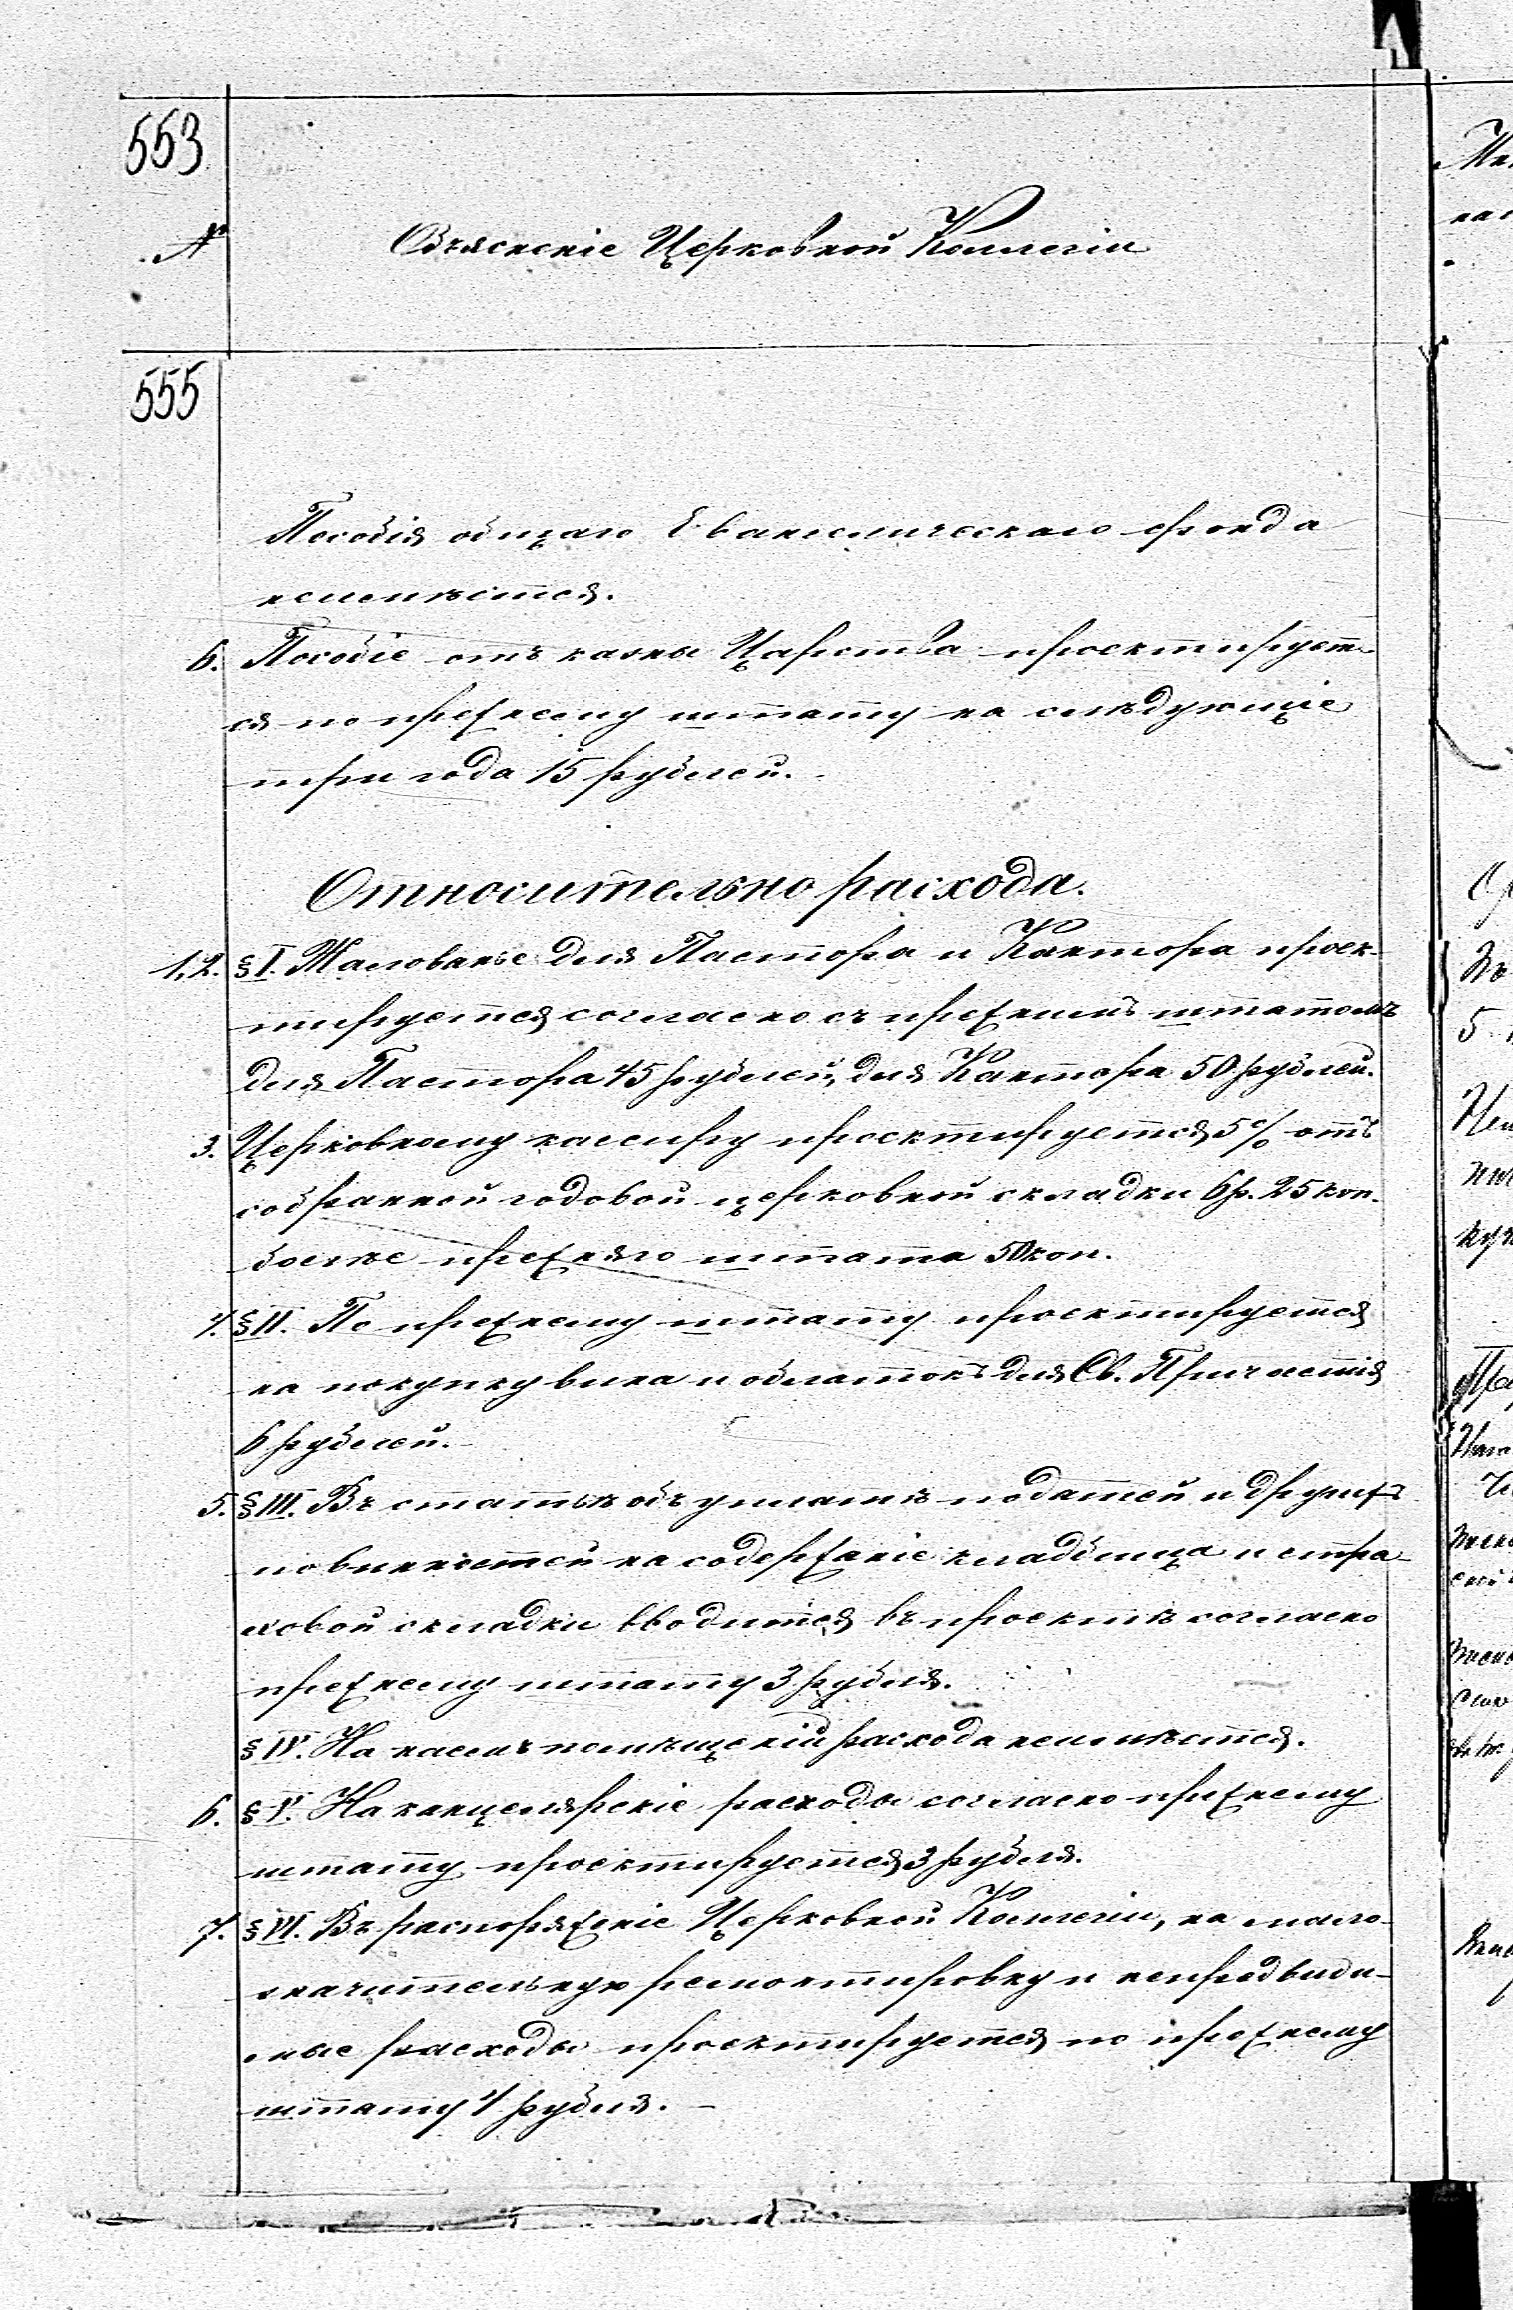 553
№
Объясненіе Церковной Коллегіи
555
Пособія общаго Евангелическаго фонда
неимѣется.
6. Пособіе отъ казны Царства проектирует-
ся по прежнему штату на слѣдующіе
три года 15 рублей.
Относительно расхода.
1,2. § I. Жалованье для Пастора и Кантора проек-
тируется согласно съ прежнимъ штатомъ
для Пастора 45 рублей, для Кантора 50 рублей.
3. Церковному кассиру проектируется 5% отъ
собранной годовой церковной складки 6 р. 25 коп.
болѣе прежняго штата 50 коп.
4. § II. По прежнему штату проектируется
на покупку вина и облатокъ для Св. Причастія
6 рублей.
5. § III. Въ статьѣ объ уплатѣ податей и другихъ
повинностей на содержаніе кладбища и стра-
ховой складки вводится въ проектѣ согласно
прежнему штату 3 рубля.
§ IV. На наемъ помѣщеній расхода неимѣется.
6. § V. На канцелярскіе расходы согласно прежнему
штату проектируется 3 рубля.
7. § VI. Въ распоряженіе Церковной Коллегіи, на мало-
значительную ремонтировку и непредвиди-
мые расходы проектируется по прежнему
штату 4 рубля.